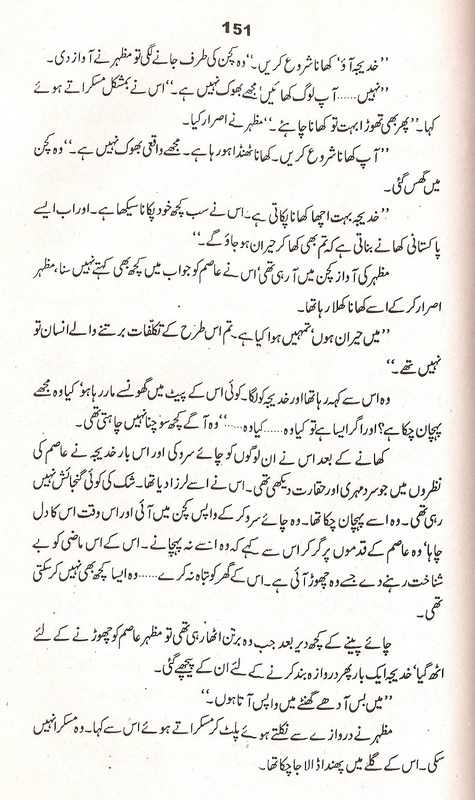 151
’’خدیجہ آؤ‘ کھانا شروع کریں۔‘‘ وہ کچن کی طرف جانے لگی تو مظہر نے آواز دی۔
’’نہیں...... آپ لوگ کھائیں‘ مجھے بھوک نہیں ہے۔‘‘ اس نے بمشکل مسکراتے ہوئے
کہا۔ ’’پھر بھی تھوڑا بہت تو کھانا چاہئے۔‘‘ مظہر نے اصرار کیا۔
’’آپ کھانا شروع کریں۔ کھانا ٹھنڈا ہو رہا ہے۔ مجھے واقعی بھوک نہیں ہے۔‘‘ وہ کچن
میں گھس گئی۔
’’خدیجہ بہت اچھا کھانا پکاتی ہے۔ اس نے سب کچھ خود پکانا سیکھا ہے۔ اور اب ایسے
پاکستانی کھانے بناتی ہے کہ تم بھی کھا کر حیران ہو جاؤ گے۔‘‘
مظہر کی آواز کچن میں آ رہی تھی‘ اس نے عاصم کو جواب میں کچھ بھی کہتے نہیں سنا‘ مظہر
اصرار کر کے اسے کھانا کھلا رہا تھا۔
’’میں حیران ہوں‘ تمہیں ہوا کیا ہے۔ تم اس طرح کے تکلّفات برتنے والے انسان تو
نہیں تھے۔‘‘
وہ اس سے کہہ رہا تھا اور خدیجہ کو لگا۔ کوئی اس کے پیٹ میں گھونسے مار رہا ہو‘ کیا وہ مجھے
پہچان چکا ہے؟ اور اگر ایسا ہے تو کیا وہ...... کیا وہ......‘‘ وہ آگے کچھ سوچنا نہیں چاہتی تھی۔
کھانے کے بعد اس نے ان لوگوں کو چائے سرو کی اور اس بار خدیجہ نے عاصم کی
نظروں میں جو سرد مہری اور حقارت دیکھی تھی۔ اس نے اسے لرزا دیا تھا۔ شک کی کوئی گنجائش نہیں
رہی تھی۔ وہ اسے پہچان چکا تھا۔ وہ چائے سرو کر کے واپس کچن میں آئی اور اس وقت اس کا دل
چاہا‘ وہ عاصم کے قدموں پر گر کر اس سے کہے کہ وہ اسے نہ پہچانے۔ اس کے اس ماضی کو بے
شناخت رہنے دے جسے وہ چھوڑ آئی ہے۔ اس کے گھر کو تباہ نہ کرے...... وہ ایسا کچھ بھی نہیں کر سکتی
تھی۔
چائے پینے کے کچھ دیر بعد جب وہ برتن اٹھا رہی تھی تو مظہر عاصم کو چھوڑنے کے لئے
اٹھ گیا‘ خدیجہ ایک بار پھر دروازہ بند کرنے کے لئے ان کے پیچھے گئی۔
’’میں بس آدھے گھنٹے میں واپس آتا ہوں۔‘‘
مظہر نے دروازے سے نکلتے ہوئے پلٹ کر مسکراتے ہوئے اس سے کہا۔ وہ مسکرا نہیں
سکی۔ اس کے گلے میں پھندا ڈالا جا چکا تھا۔